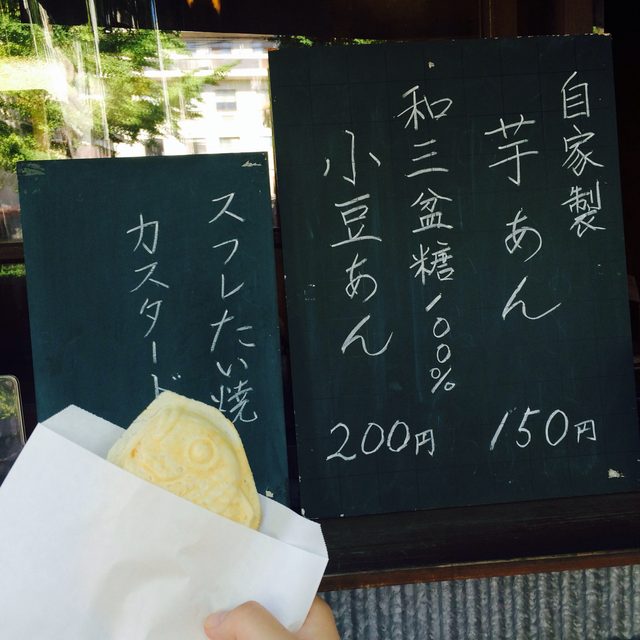 自家製
芋あん
150円
和三盆糖100%
小豆あん
200円
スフレたい焼
カスタード